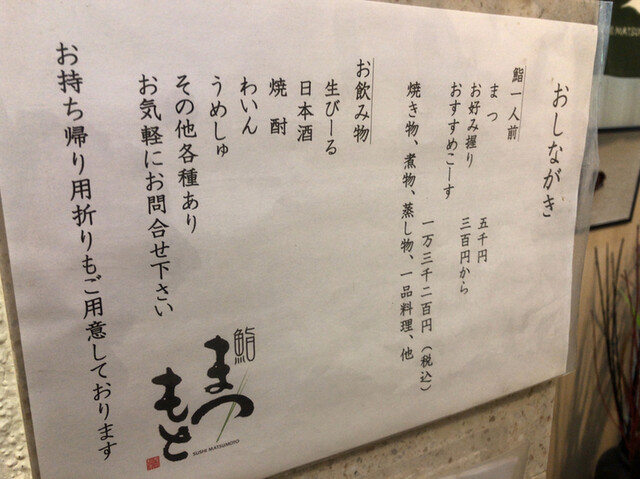 おしながき
鮨一人前
まつ 五千円
お好み握り 三百円から
おすすめこーす 一万三千二百円（税込）
焼き物、煮物、蒸し物、一品料理、他
お飲み物
生びーる
日本酒
焼酎
わいん
うめしゅ
その他各種あり
お気軽にお問合せ下さい
お持ち帰り用折りもご用意しております
鮨
まつ
もと
SUSHI MATSUMOTO